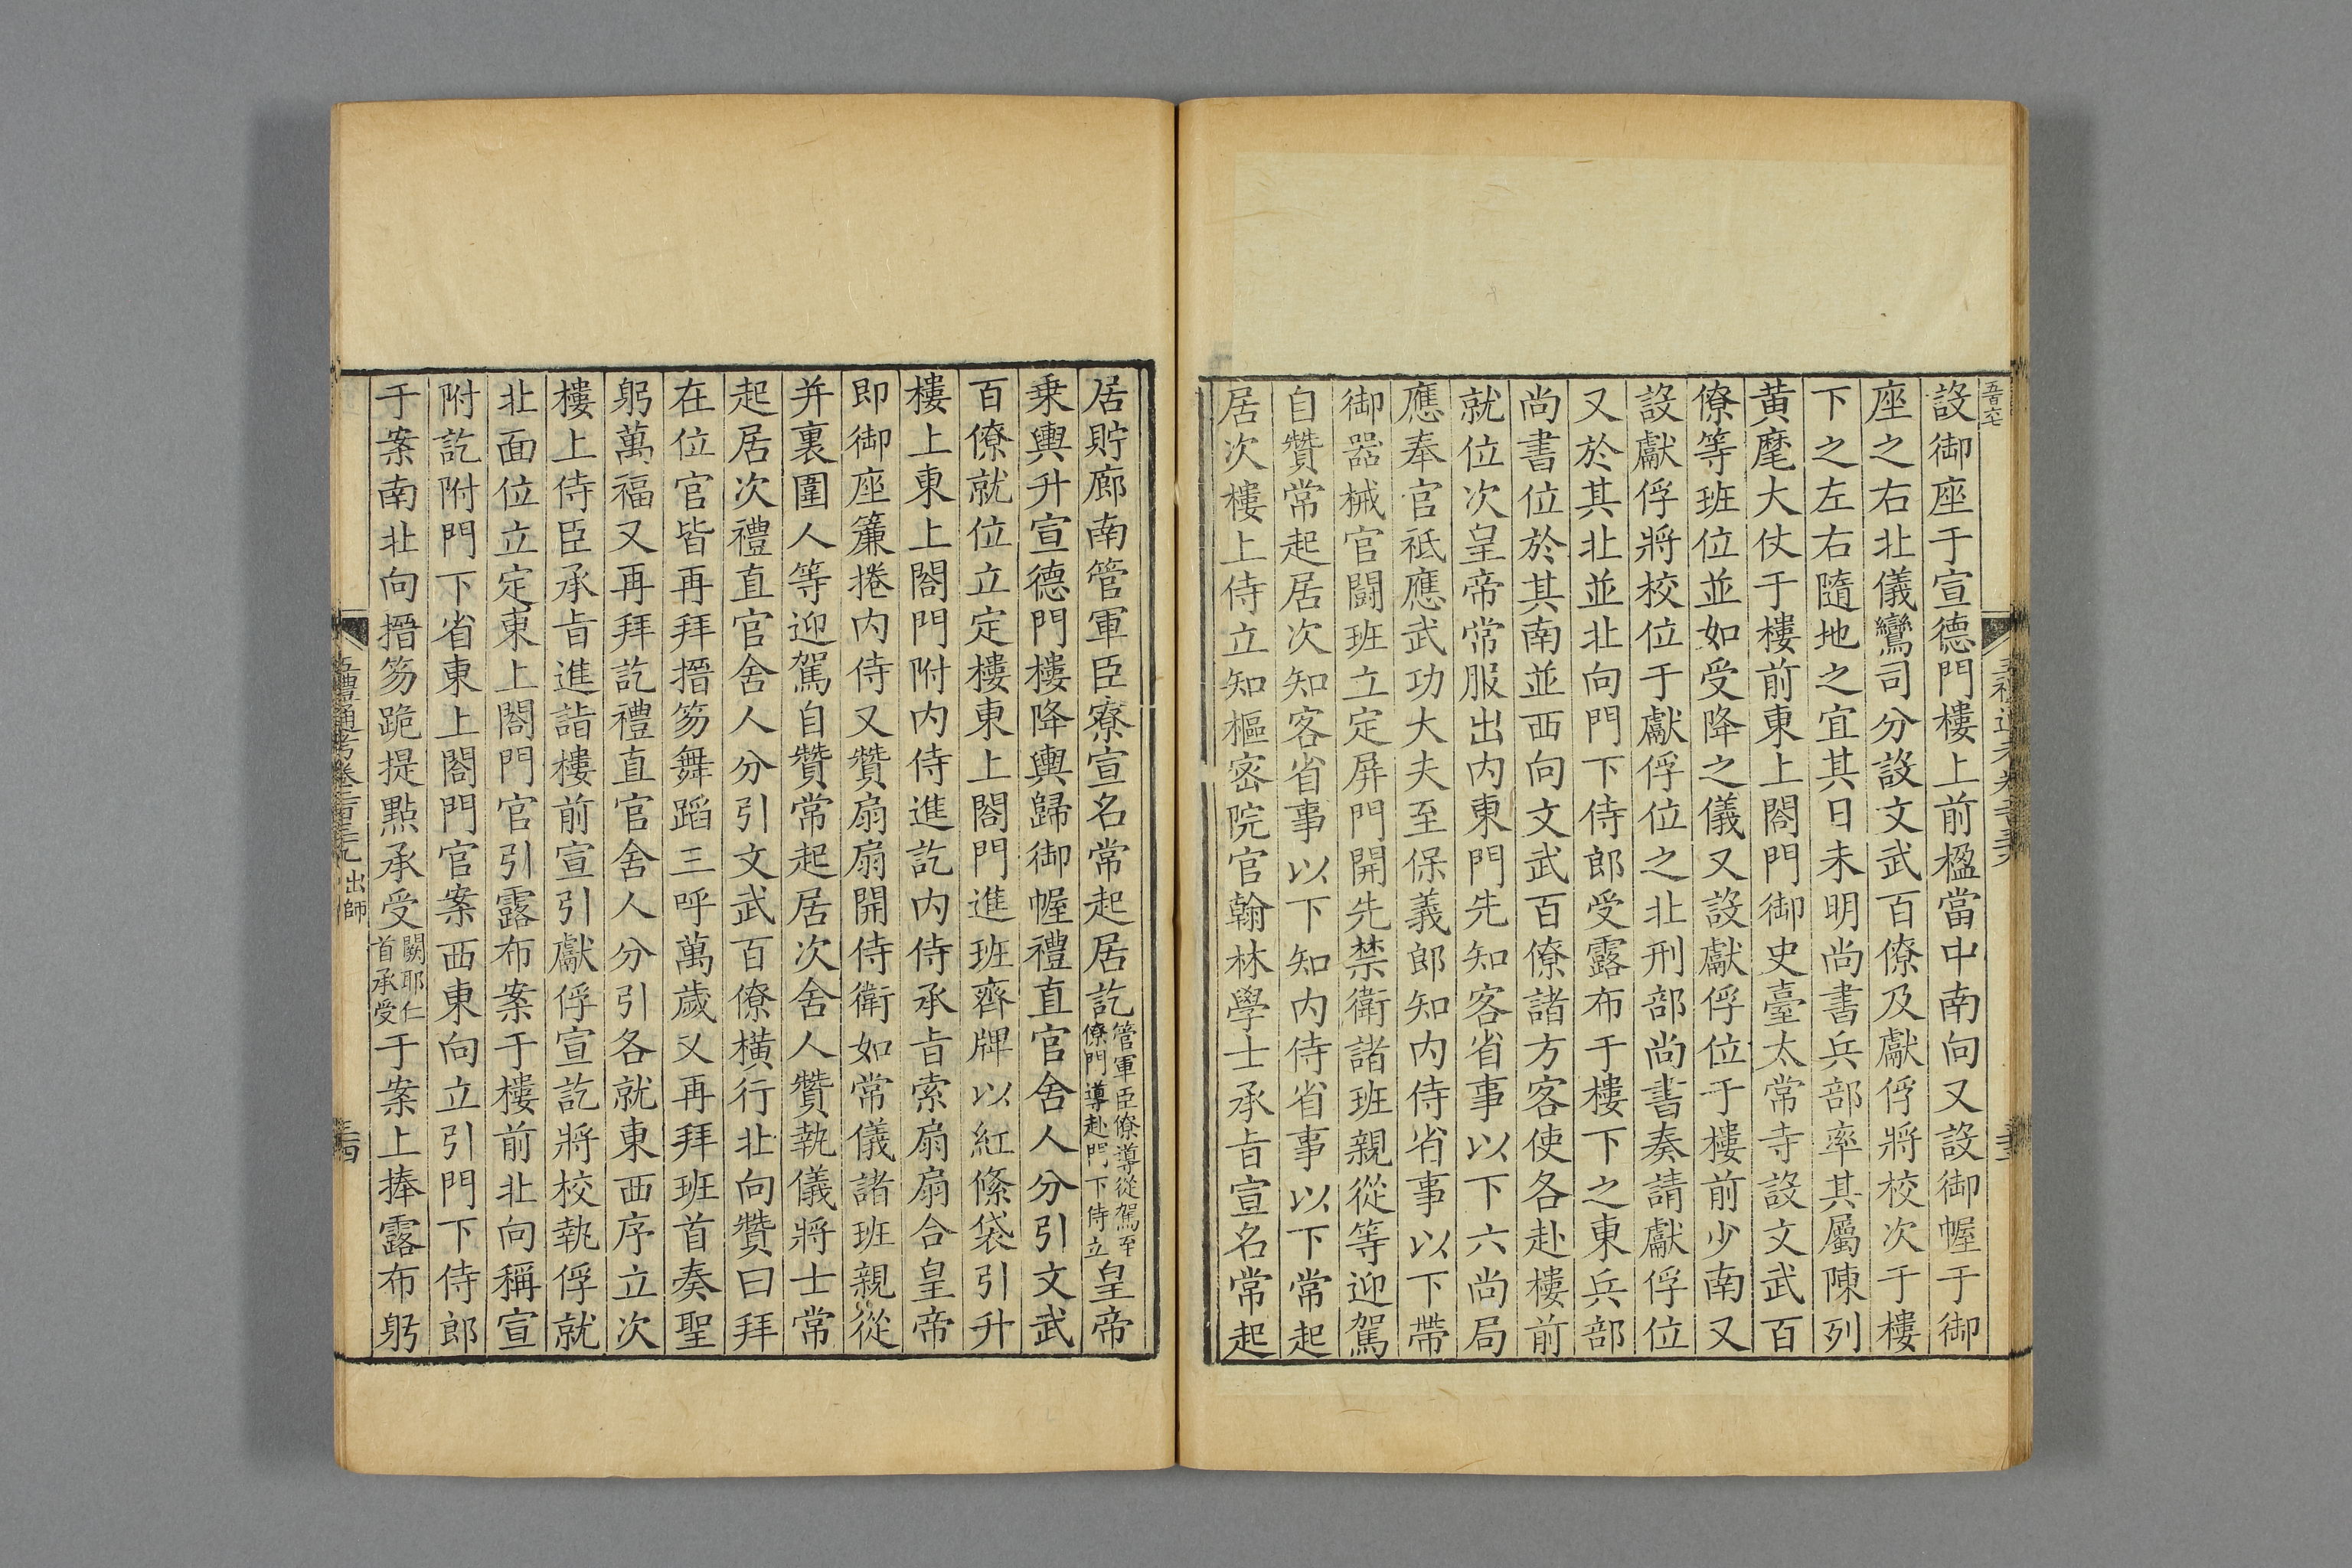 設御座于宣德門樓上前楹當中南向又設御幄于御
座之右北儀鸞司分設文武百僚及獻俘將校次于樓
下之左右隨地之宜其日未明尚書兵部率其屬陳列
黃麾大仗于樓前東上閤門御史臺太常寺設文武百
僚等班位並如受降之儀又設獻俘位于樓前少南又
設獻俘將校位于獻俘位之北刑部尚書奏請獻俘位
又於其北並北向門下侍郎受露布于樓下之東兵部
尚書位於其南並西向文武百僚諸方客使各赴樓前
就位次皇帝常服出内東門先知客省事以下六尚局
應奉官祗應武功大夫至保義郎知内侍省事以下帶
御器械官闘班立定屏門開先禁衛諸班親從等迎駕
自贊常起居次知客省事以下知内侍省事以下常起
居次樓上侍立知樞密院官翰林學士承旨宣名常起
居貯廊南管軍臣寮宣名常起居訖管軍臣僚導從駕至僚門導赴門下侍立皇帝
乗輿升宣德門樓降輿歸御幄禮直官舍人分引文武
百僚就位立定樓東上閤門進班齊牌以紅絛袋引升
樓上東上閤門附内侍進訖内侍承旨索扇扇合皇帝
即御座簾捲内侍又贊扇扇開侍衛如常儀諸班親從
并裏圍人等迎駕自贊常起居次舍人贊執儀將士常
起居次禮直官舍人分引文武百僚橫行北向贊曰拜
在位官皆再拜搢笏舞蹈三呼萬歲又再拜班首奏聖
躬萬福又再拜訖禮直官舍人分引各就東西序立次
樓上侍臣承旨進詣樓前宣引獻俘宣訖將校執俘就
北面位立定東上閤門官引露布案于樓前北向稱宣
附訖附門下省東上閤門官案西東向立引門下侍郎
于案南北向搢笏跪提點承受闕耶仁首承受于案上捧露布躬
五禮通考卷二百三十九 出師